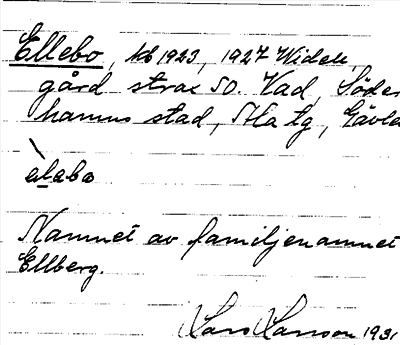 Ellebo, kb 1923, 1927 Widell,
gård strax SO. Vad, Söder
hamns stad, Ala tg, Gävle
elabo
Namnet av familjenamnet
Ellberg.
Lars Larsson 1931